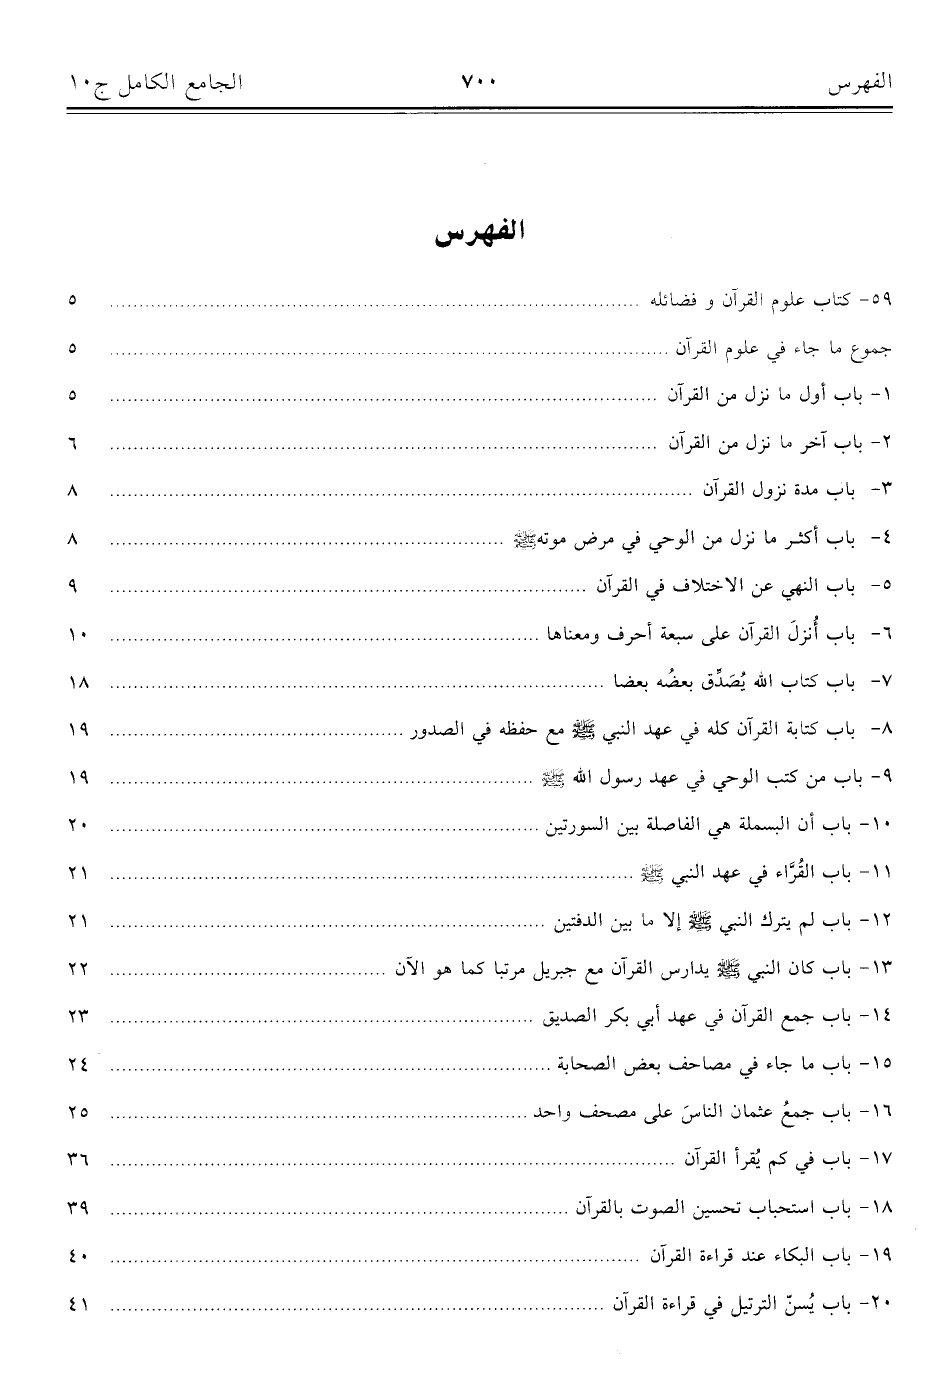 الفهرس ٧٠٠ الجامع الكامل ج١٠
الفهرس
٥٩- كتاب علوم القرآن و فضائله ........ ٥
جموع ما جاء في علوم القرآن ........ ٥
١- باب أول ما نزل من القرآن ........ ٥
٢- باب آخر ما نزل من القرآن ........ ٦
٣- باب مدة نزول القرآن ........ ٨
٤- باب أكثر ما نزل من الوحي في مرض موته ﷺ ........ ٨
٥- باب النهي عن الاختلاف في القرآن ........ ٩
٦- باب أُنزلَ القرآن على سبعة أحرف ومعناها ........ ١٠
٧- باب كتاب الله يُصَدِّق بعضُه بعضا ........ ١٨
٨- باب كتابة القرآن كله في عهد النبي ﷺ مع حفظه في الصدور ........ ١٩
٩- باب من كتب الوحي في عهد رسول الله ﷺ ........ ١٩
١٠- باب أن البسملة هي الفاصلة بين السورتين ........ ٢٠
١١- باب القُرَّاء في عهد النبي ﷺ ........ ٢١
١٢- باب لم يترك النبي ﷺ إلا ما بين الدفتين ........ ٢١
١٣- باب كان النبي ﷺ يدارس القرآن مع جبريل مرتبا كما هو الآن ........ ٢٢
١٤- باب جمع القرآن في عهد أبي بكر الصديق ........ ٢٣
١٥- باب ما جاء في مصاحف بعض الصحابة ........ ٢٤
١٦- باب جمعُ عثمان الناسَ على مصحف واحد ........ ٢٥
١٧- باب في كم يُقرأ القرآن ........ ٣٦
١٨- باب استحباب تحسين الصوت بالقرآن ........ ٣٩
١٩- باب البكاء عند قراءة القرآن ........ ٤٠
٢٠- باب يُسنّ الترتيل في قراءة القرآن ........ ٤١